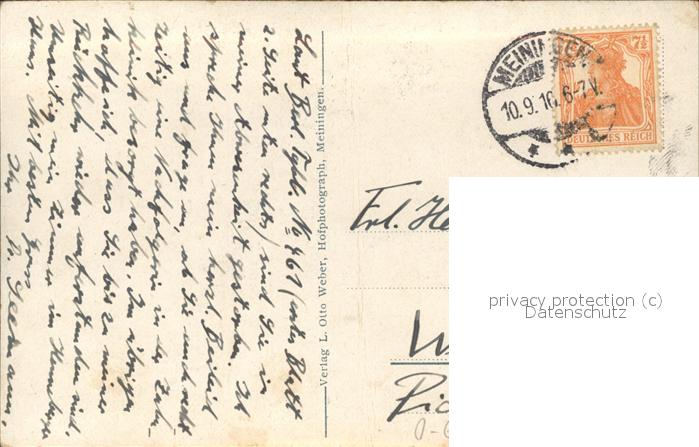 Laut Berl. Tgbl. No 461 (erstes Blatt
2. Seite unten rechts) sind Sie in
meiner Abwesenheit gestorben. Ich
spreche Ihnen mein herzl. Beileid
aus und frage an, ob Sie auch recht
zeitig eine Nachfolgerin in der Zahn-
klinik besorgt haben. Im übrigen
hoffe ich, dass Sie bis zu meiner
Rückkehr wieder auferstanden sind.
mein Zimmer im
Haus. Mit besten Gruss
Ihr
Dr. Seemann.
Verlag L. Otto Weber, Hofphotograph, Meiningen.
MEININGEN
10.9.16. 6-7V.
7½
DEUTSCHES REICH
Frl. He
privacy protection (c)
Datenschutz